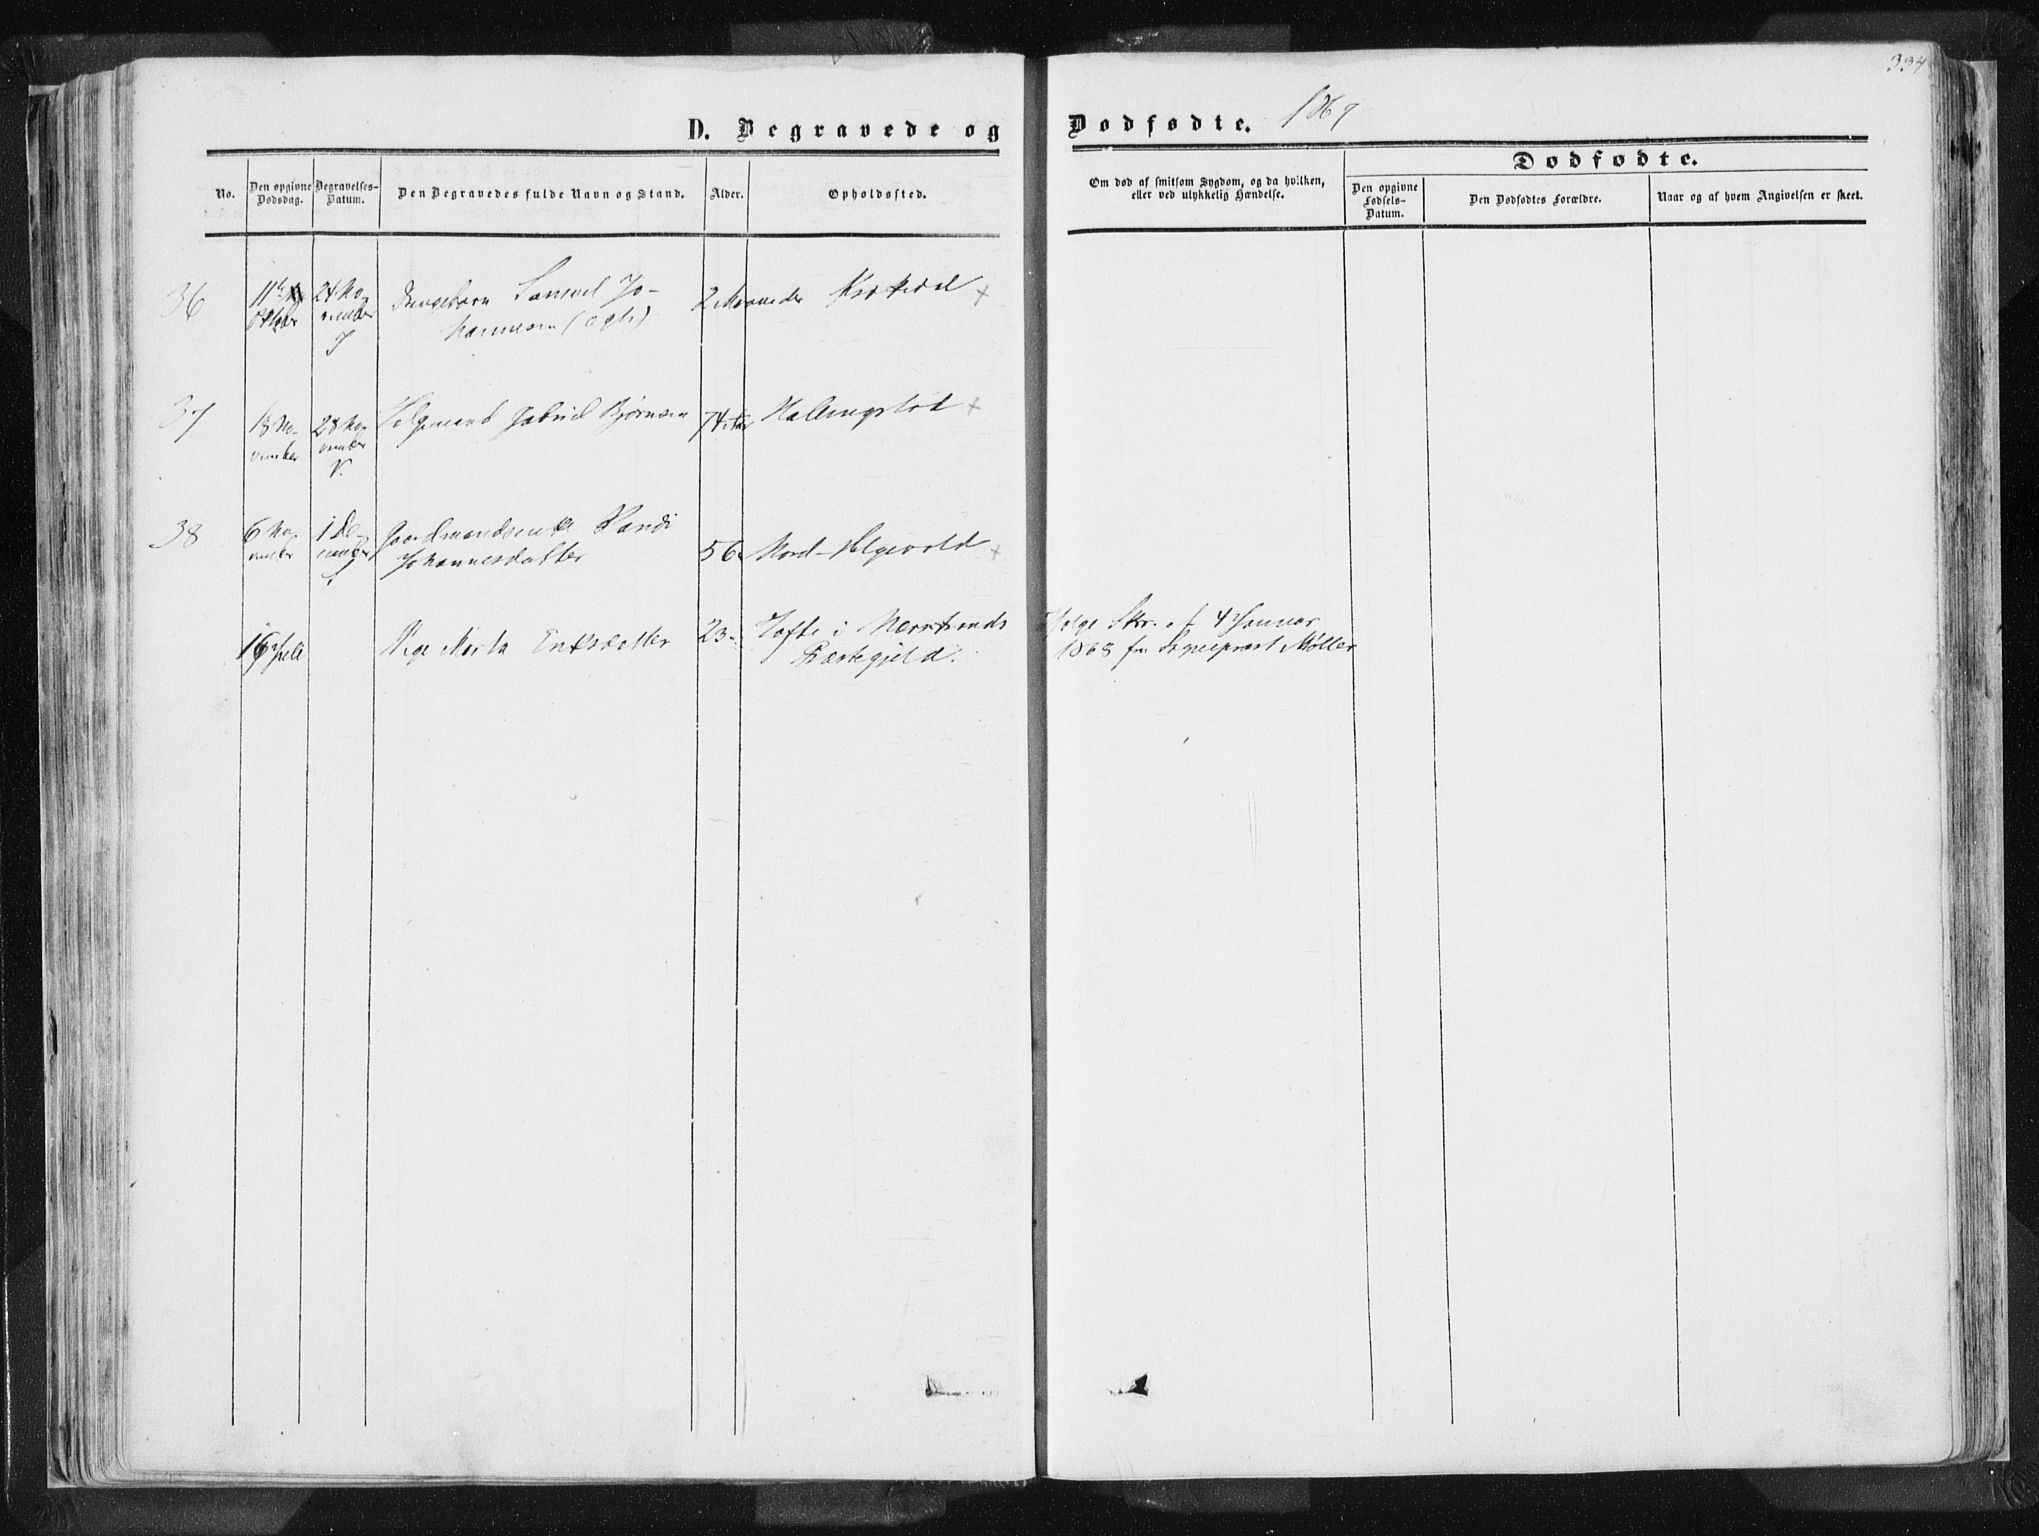 334
D. Begravede og Dødfødte. 1867
Dødfødte.
No.
Den opgivne Dødsdag.
Begravelses-Datum.
Den Begravedes fulde Navn og Stand.
Alder.
Opholdssted.
Om død af smitsom Sygdom, og da hvilken, eller ved ulykkelig Hændelse.
Den opgivne Fødsels-Datum.
Den Dødfødtes Forældre.
Naar og af hvem Angivelsen er skeet.
36
11te Oktober
24 November
Drengebarn Samuel Johannesen (ægte)
2 Maaneder
37
18 November
28 November
V.
Gabriel Bjørnsen
74 Aar
Hallingstad
38
6 November
1 December
Gaardmandsenke Randi Johannesdatter
56
Nord-Helgevold
16 Juli
Pige Marta Eriksdatter
23
Tofte i Nærstrands Præstegjeld.
Ifølge Skr. af 4 Januar
1868 fra Sognepræst Møller